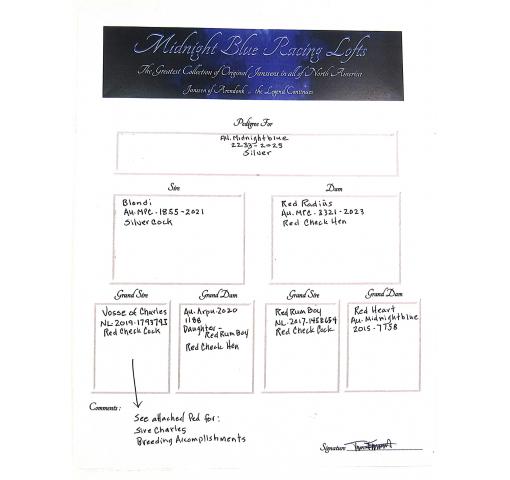 Midnight Blue Racing Lofts
The Greatest Collection of Original Janssens in all of North America
Janssen of Arendonk ... the Legend Continues
Pedigree For
Au.Midnightblue
2233-2025
Silver
Sire
Dam
Blondi
Au.MPC-1855-2021
Silver Cock
Red Radius
Au.MPC-3321-2023
Red Check Hen
Grand Sire
Grand Dam
Grand Sire
Grand Dam
Vosse of Charles
NL-2019-1793793
Red Check Cock
Au.Arpu-2020
1188
Daughter-
Red Rum Boy
Red Check Hen
Red Rum Boy
NL-2017-1458659
Red Check Cock
Red Heart
Au-Midnightblue
2015-7758
Comments:
See attached Ped for:
Sire Charles
Breeding Accomplishments
Signature